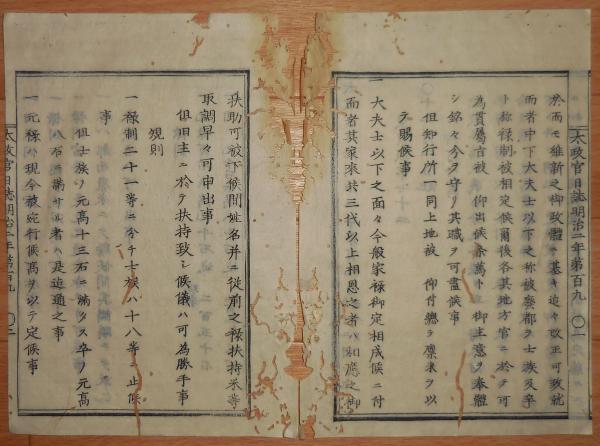 太政官日誌明治二年第百九 〇一
於而モ維新之御政體ニ基キ追々改正可致就
而者中下大夫士以下之称被廃都テ士族及卒
ト称禄制被相定候爾後各其地方官ニ於テ可
為貫属旨被 仰出候条萬 御主意ヲ奉體
シ銘々分ヲ守リ其職ヲ可盡候事
但知行所一同上地被 仰付總テ廩米ヲ以
テ賜候事
一 大夫士以下之面々今般家禄御定相成候ニ付
而者其家来共三代以上相恩之者ハ相應之御
扶助可被下候間姓名并ニ従前之禄扶持米等
取調早々可申出事
但旧主ニ於テ扶持致シ候儀ハ可為勝手事
規則
一 禄制二十一等ニ分チ士族ハ十八等ニ止候
事
但士族ノ元高十三石ニ満タス卒ノ元高
八石ニ満サル者ハ是迄通之事
一 元禄ハ現今被宛行候高ヲ以テ定候事
太政官日誌明治二年第百九 〇二